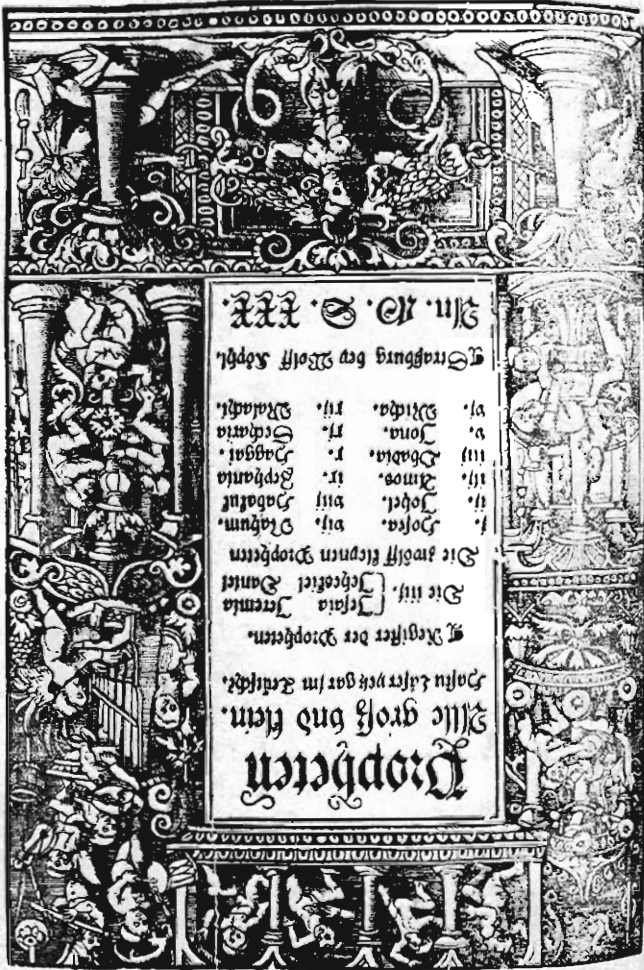 Propheten
Alle groß vnd klein.
Hastu Läser yetz gar im Teütsche.
¶ Register der Propheten.
Die iiij. Jesaia Jeremia
Jeheskiel Daniel
Die zwölff kleynen Propheten
j. Hosea. vij. Nahum.
ij. Johel. viij Habakuk
iij. Amos. ix. Zephania
iiij Obadia. x. Haggai.
v. Jona. xj. Secharia
vj. Micha. xij. Malachi.
¶ Straßburg bey Wolff Köphl.
An. M. D. XXX.